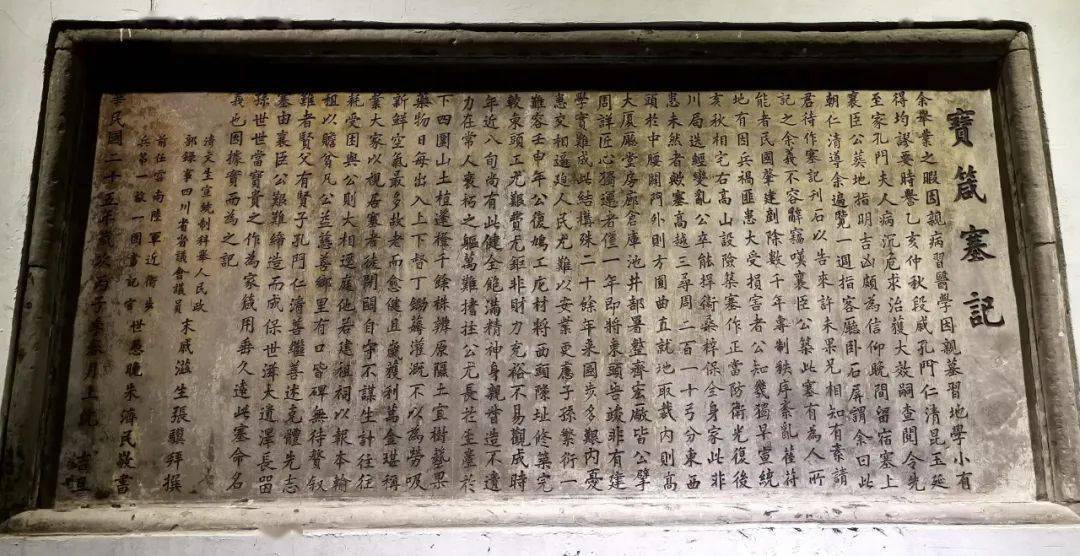 寶箴塞記
余舉業之暇因親病習醫學因親墓習地學小有
得均謬要時譽乙亥仲秋段戚孔門仁清昆玉延
至家孔門夫人病沉危求治獲大效嗣查閱令先
襄臣公葬地指明吉凶頗為信仰晚間留宿塞上
朝仁清導余遍覽一週指客廳卧石屏謂余曰此
君待作塞記刊石以告來許未果兄相知有素請
記之余義不容辭竊嘆襄臣公築此塞有為人所
能者民國肇建剷除數千年專制秩序紊亂萑苻
地有因兵禍匪患大受損害者公知幾獨早當統
亥秋相宅右高山設險築塞作正當防衛光復後
川局迭經變亂公卒能捍衛桑梓保全身家此非
患未然者歟塞高越三尋周二百一十弓分東西
頭於中腰開門外則方圓曲直就地取裁內則高
大厦廳堂房廊倉庫池井部署整齊宏敞皆公擘
周詳匠心獨運者僅一年即將東頭告竣非有建
學實難成此結構殊二十餘年來國步多艱內憂
患交相逼迫人民尤難以安業更慮子孫繁衍一
難容壬申年公復鳩工庀材將西頭陳址修築完
較東頭工尤艱費尤鉅非財力充裕不易觀成時
年近八旬尚有此健全飽滿精神身親督造不遺
力在常人衰朽之軀萬難撐拄公尤長於生產於
下四圍山土植達千餘株辨原隰土宜樹藝果
藥物日每出入上下督丁鋤薅灌溉不以為勞吸
新鮮空氣最多故老而愈健且歲獲利萬金堪稱
業大家以視居塞者徒閉關自守不謀生計往往
耗受困與公則大相逕庭他若建祖祠以報本輪
租以贍貧凡公益慈善鄉里有口皆碑無待贅敘
雖者賢父有賢子孔門仁清善繼善述克體先志
塞由襄臣公艱難締造而成保世滋大遺澤長留
孫世世當寶貴之作為家箴用垂久遠此塞命名
義也因據實而為之記
清文生宣統制科舉人民政
部錄事四川省省議會議員
末戚滋生張驥拜撰
前任雲南陸軍近衛步
兵第一敢一團書記官
世愚晚朱濟民敬書
華民國二十五年歲次丙子季春月上浣